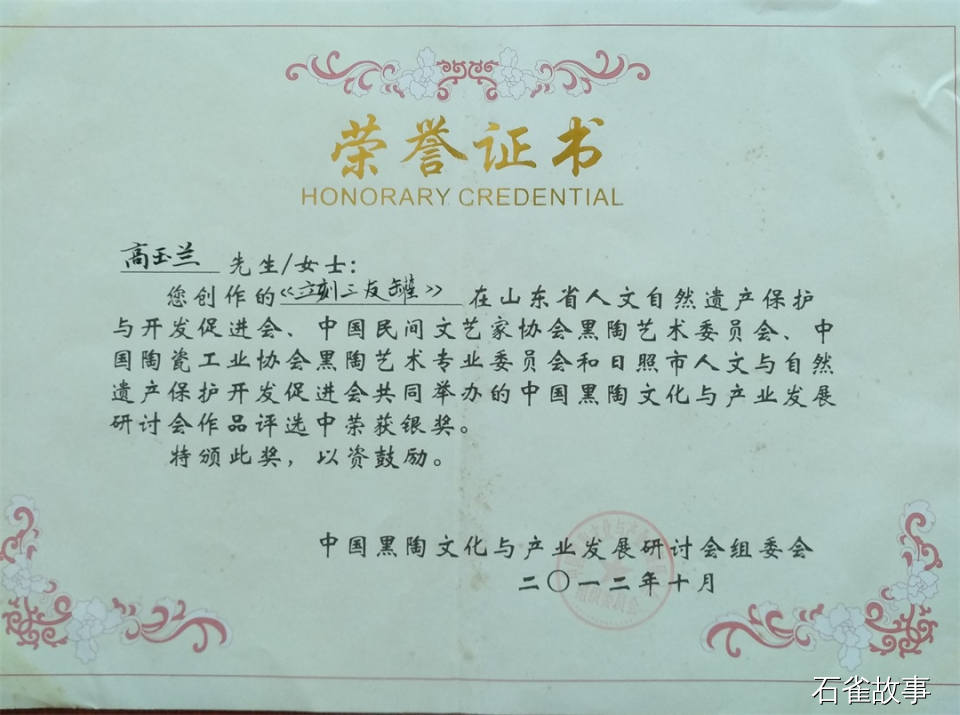 荣誉证书
HONORARY CREDENTIAL
高玉兰 先生/女士:
您创作的《立刻三友罐》在山东省人文自然遗产保护
与开发促进会、中国民间文艺家协会黑陶艺术委员会、中
国陶瓷工业协会黑陶艺术专业委员会和日照市人文与自然
遗产保护开发促进会共同举办的中国黑陶文化与产业发展
研讨会作品评选中荣获银奖。
特颁此奖，以资鼓励。
中国黑陶文化与产业发展研讨会组委会
二〇一二年十月
石雀故事